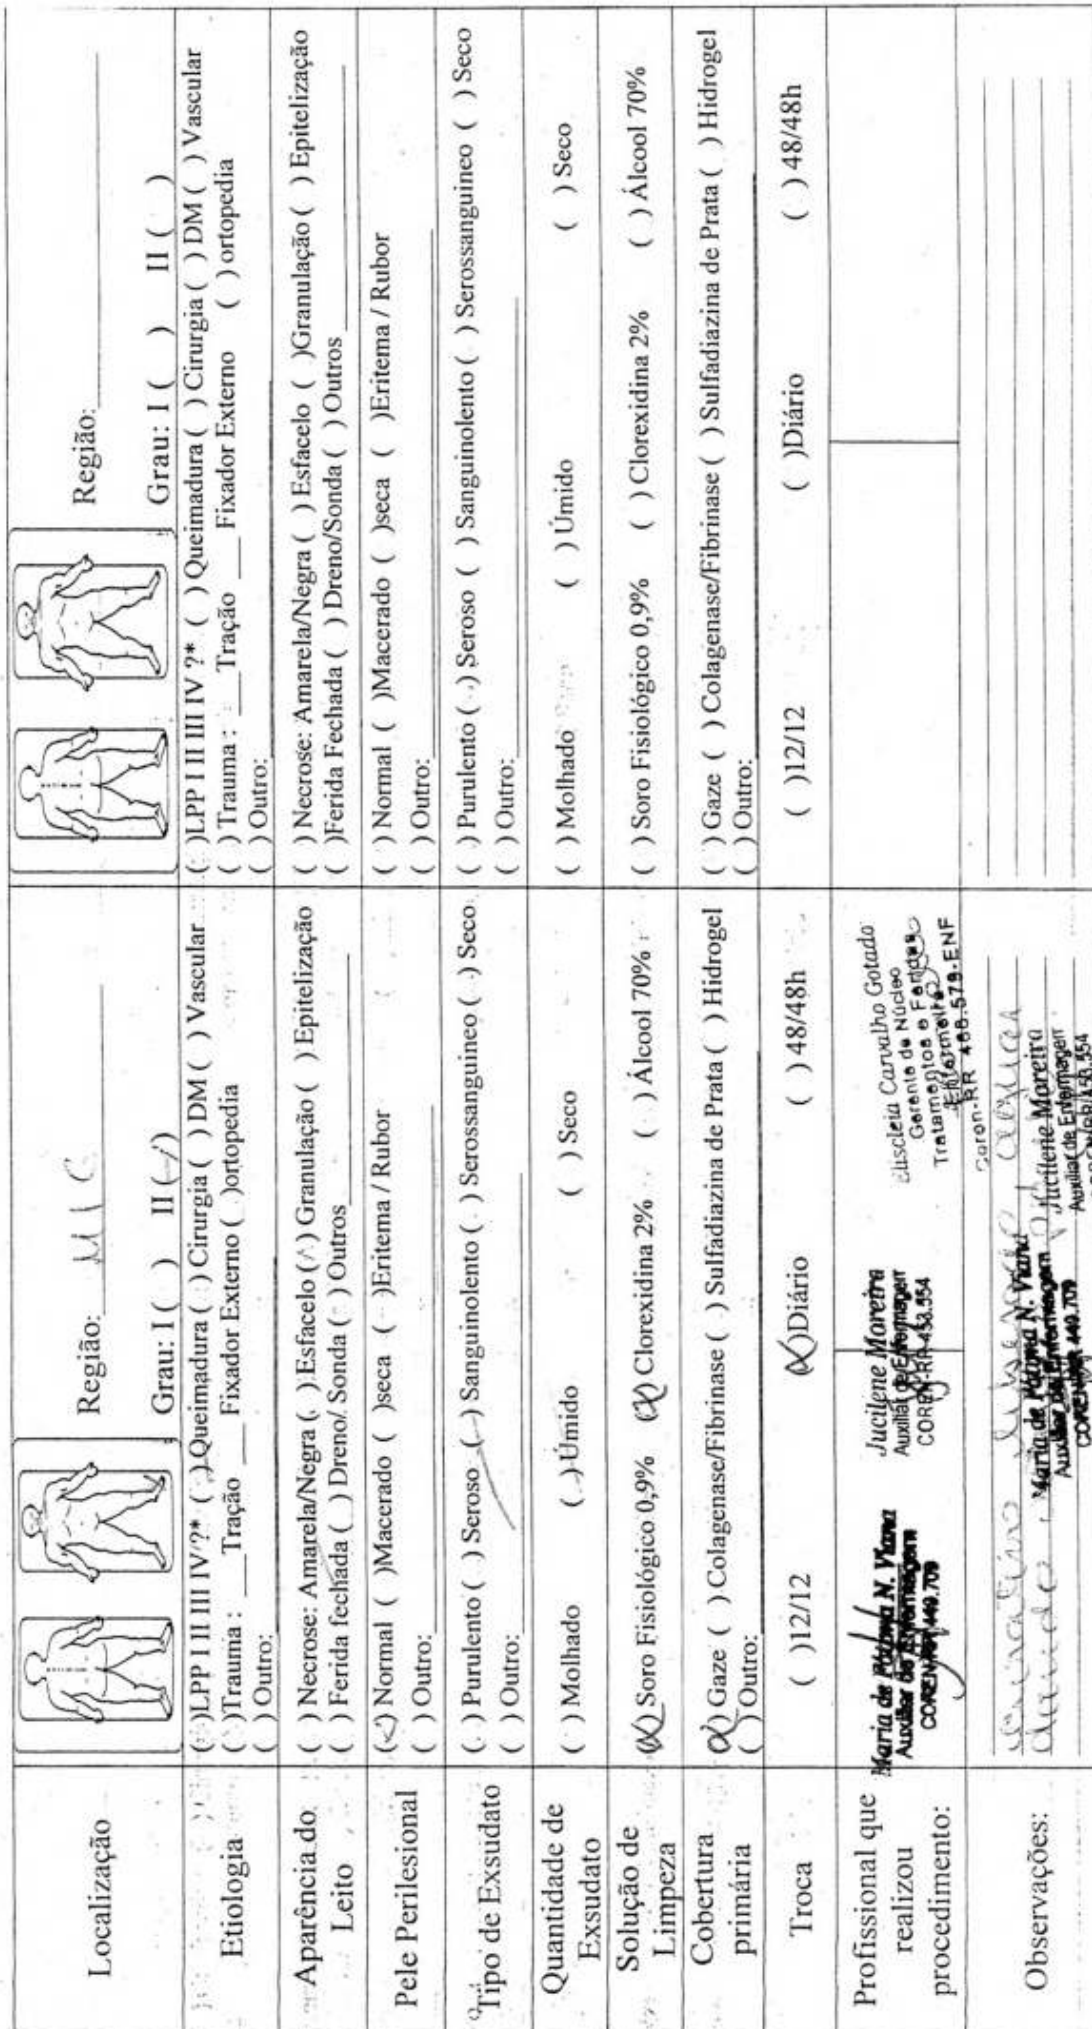 Localização
Região: M I C
Grau: I ( ) II (/)
Região:
Grau: I ( ) II ( )
Etiologia
( )LPP I II III IV ?* ( )Queimadura ( )Cirurgia ( )DM ( ) Vascular
( )Trauma : ___Tração ___Fixador Externo ( )ortopedia
( ) Outro:
( )LPP I II III IV ?* ( ) Queimadura ( ) Cirurgia ( ) DM ( ) Vascular
( ) Trauma : ___Tração ___Fixador Externo ( ) ortopedia
( ) Outro:
Aparência do Leito
( ) Necrose: Amarela/Negra ( ) Esfacelo ( ) Granulação ( ) Epitelização
( ) Ferida fechada ( ) Dreno/ Sonda ( ) Outros
( ) Necrose: Amarela/Negra ( ) Esfacelo ( )Granulação ( ) Epitelização
( )Ferida Fechada ( ) Dreno/Sonda ( ) Outros
Pele Perilesional
(/) Normal ( )Macerado ( )seca ( )Eritema / Rubor
( ) Outro:
( ) Normal ( )Macerado ( )seca ( )Eritema / Rubor
( ) Outro:
Tipo de Exsudato
( ) Purulento ( ) Seroso (/) Sanguinolento ( ) Serossanguineo ( ) Seco
( ) Outro:
( ) Purulento ( ) Seroso ( ) Sanguinolento ( ) Serossanguineo ( ) Seco
( ) Outro:
Quantidade de Exsudato
( ) Molhado ( ) Úmido ( ) Seco
( ) Molhado ( ) Úmido ( ) Seco
Solução de Limpeza
(X) Soro Fisiológico 0,9% (X) Clorexidina 2% ( ) Álcool 70%
( ) Soro Fisiológico 0,9% ( ) Clorexidina 2% ( ) Álcool 70%
Cobertura primária
(X) Gaze ( ) Colagenase/Fibrinase ( ) Sulfadiazina de Prata ( ) Hidrogel
( ) Outro:
( ) Gaze ( ) Colagenase/Fibrinase ( ) Sulfadiazina de Prata ( ) Hidrogel
( ) Outro:
Troca
( )12/12 (X)Diário ( ) 48/48h
( )12/12 ( )Diário ( ) 48/48h
Profissional que realizou procedimento:
Maria de N. Viana
Auxiliar de Enfermagem
449.709
Jucilene Moreira
Auxiliar de Enfermagem
COREN-RR-453.554
Carvalho Gotado
Gerente de Núcleo
Tratamentos e Feridas
Enfermeira
Coren-RR 468.579-ENF
Observações:
Maria de N. Viana
Auxiliar de Enfermagem
449.709
Jucilene Moreira
Auxiliar de Enfermagem